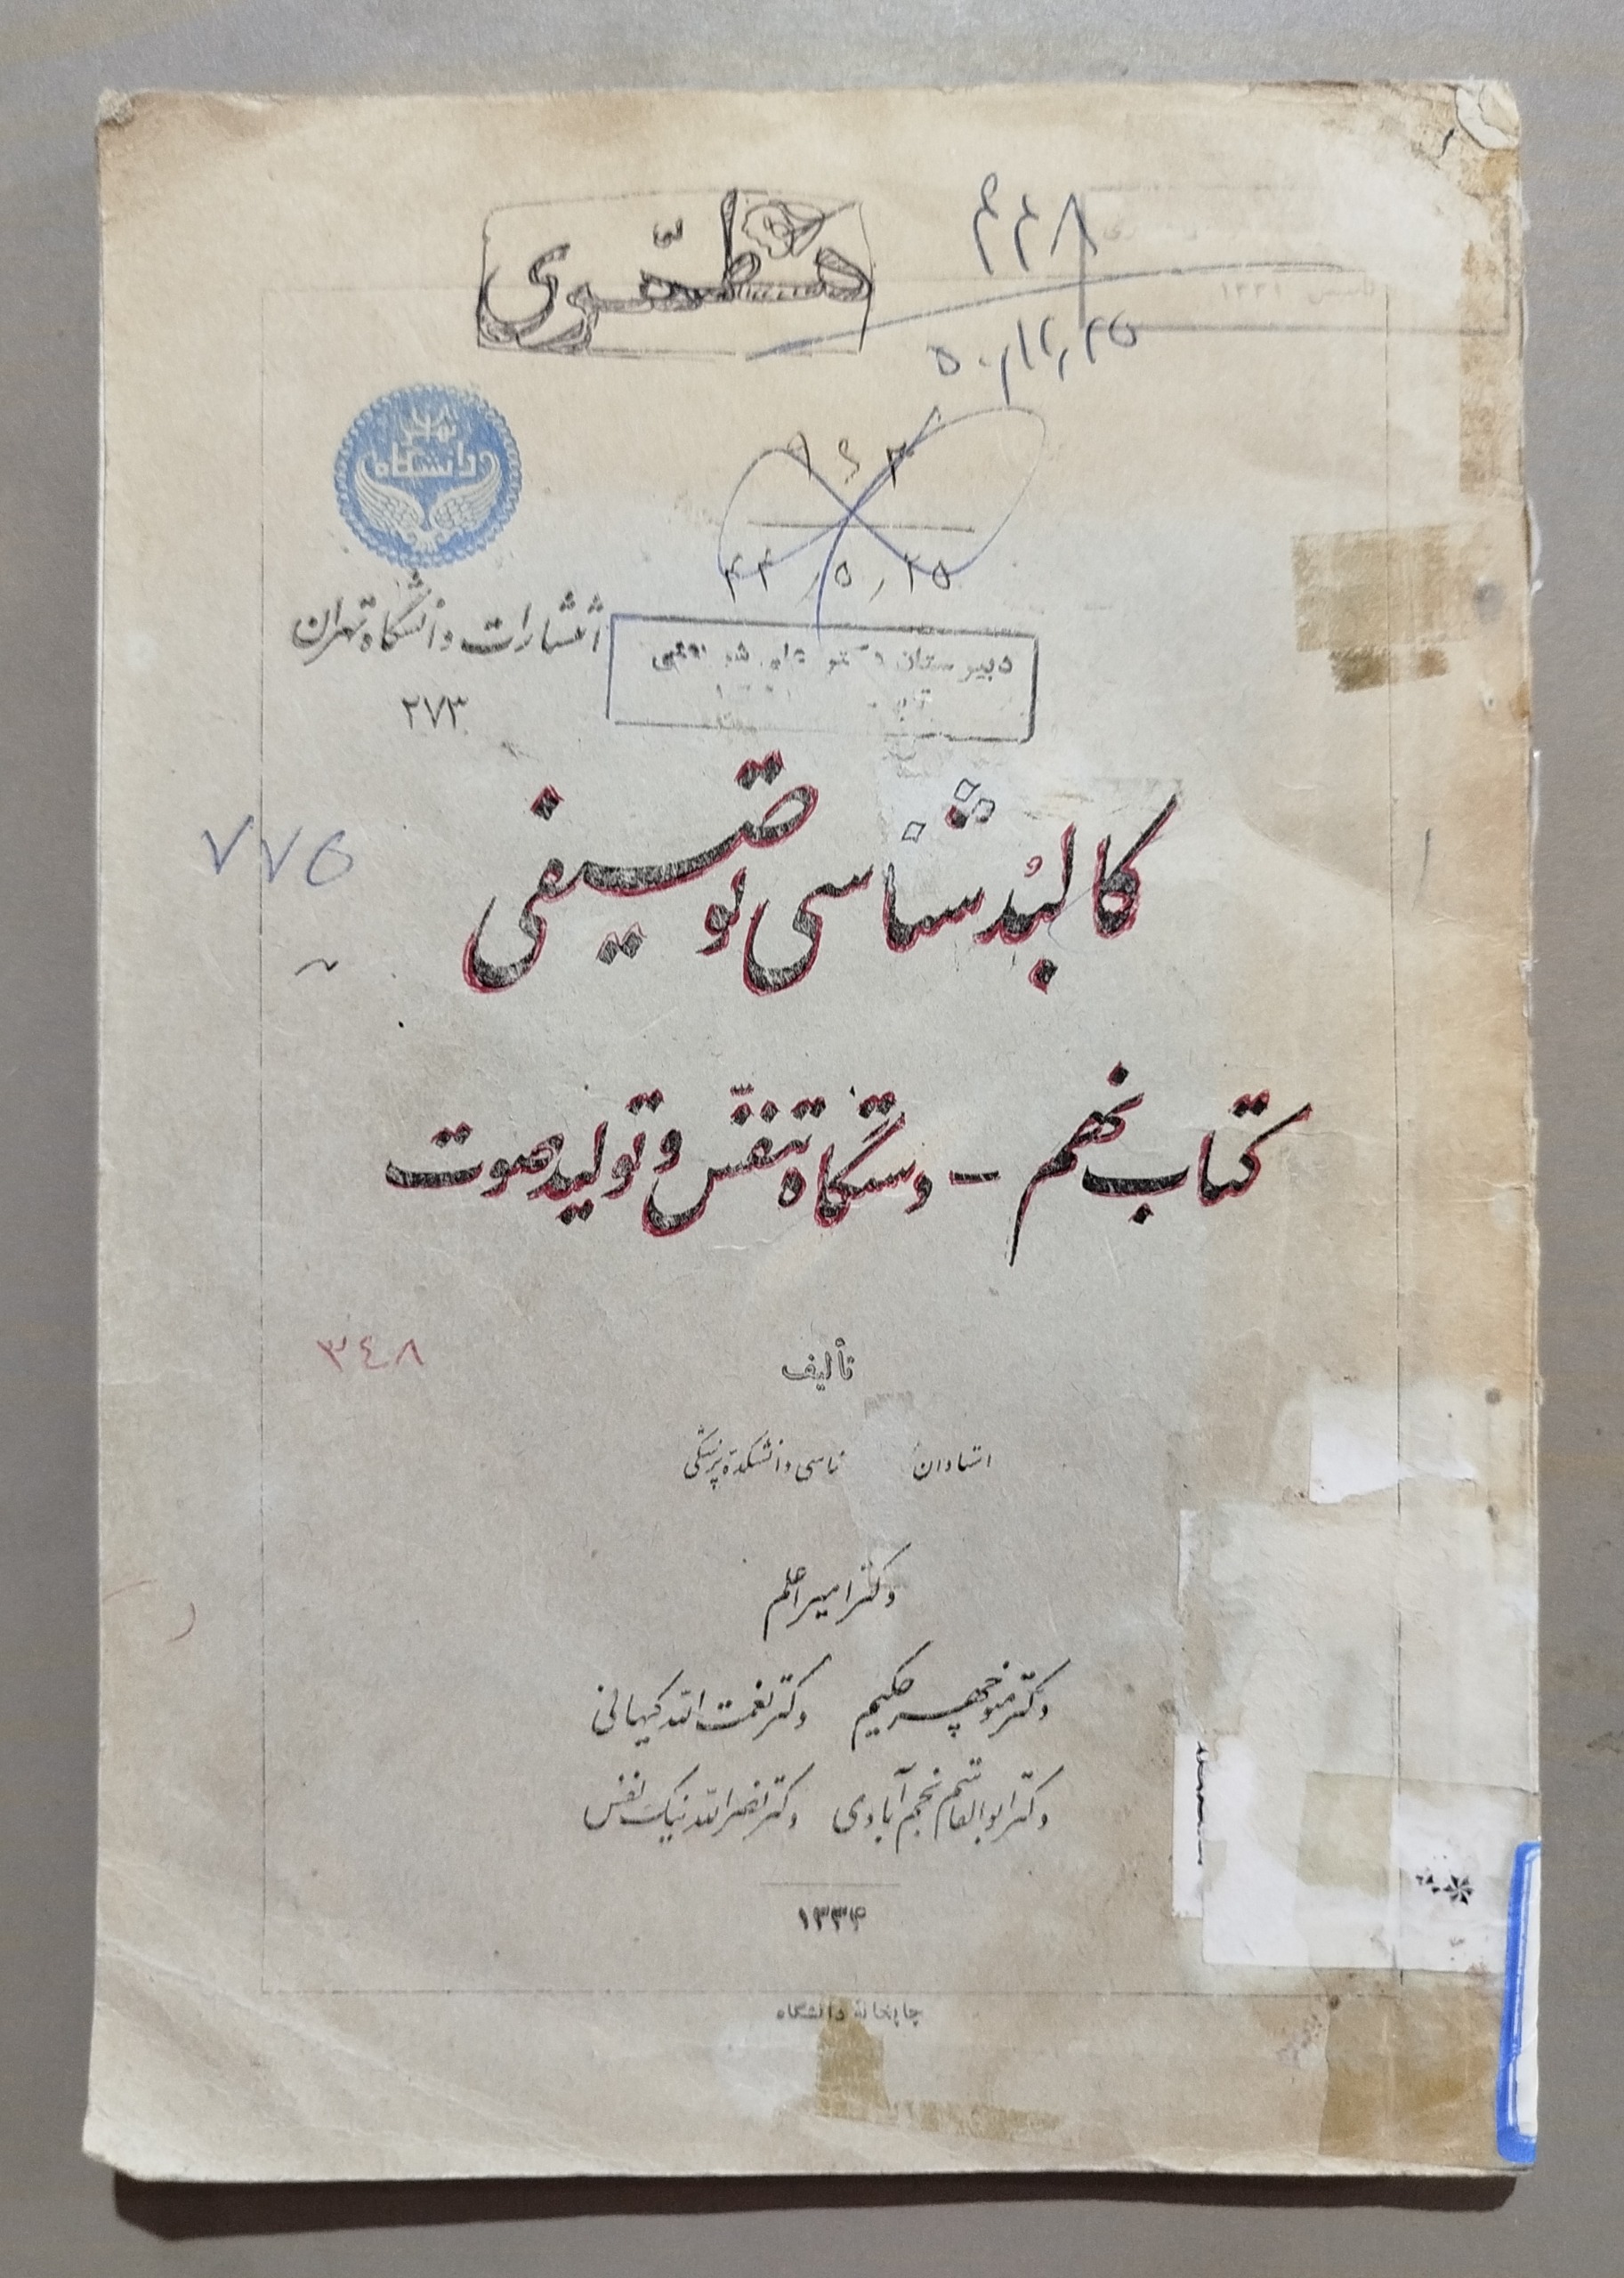 ۴۴۸
۵۰,۱۲,۲۵
۹۶۳
۴۴,۵,۲۵
دانشگاه
تهران
انتشارات دانشگاه تهران
۲۷۳
دبیرستان
کالبدشناسی توصیفی
۷۷۵
کتاب نهم - دستگاه تنفّس و تولید صوت
۳۴۸
تألیف
استادان ناسی دانشکدهٔ پزشکی
دکتر امیر اعلم
دکتر منوچهر حکیم دکتر نعمت الله کیهانی
دکتر ابوالقاسم نجم آبادی دکتر نصرالله نیک نفس
۱۳۳۴
چاپخانهٔ دانشگاه